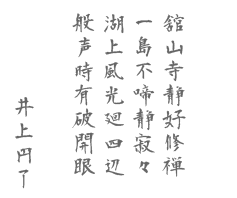 舘山寺静好修禅
一鳥不啼静寂々
湖上風光廻四辺
般声時有破開眼
井上円了